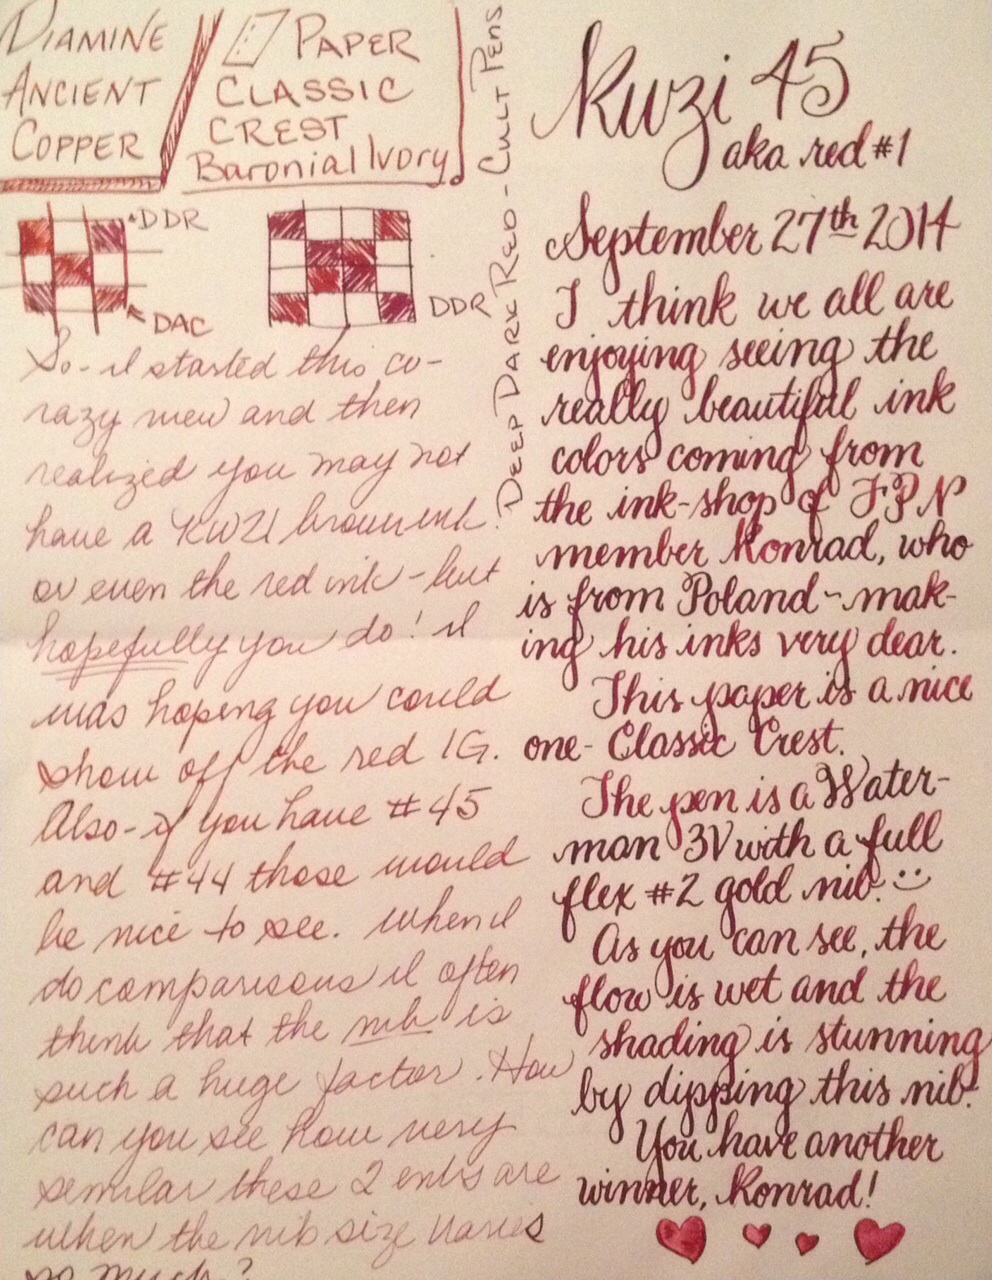 DIAMINE
ANCIENT
COPPER
PAPER
CLASSIC
CREST
Baronial Ivory
DEEP DARK RED - CULT PENS
DDR
DAC
DDR
So - I started this co-
razy mew and then
realized you may not
have a KWZI brown ink
or even the red ink - but
hopefully you do! I
was hoping you could
show off the red IG.
Also - if you have #45
and #44 those would
be nice to see. When I
do comparisons I often
think that the nib is
such a huge factor. How
can you see how very
similar these 2 inks are
when the nib size varies
so much?
Kuzi 45
aka red #1
September 27th 2014
I think we all are
enjoying seeing the
really beautiful ink
colors coming from
the ink-shop of FPN
member Konrad, who
is from Poland ~ mak-
ing his inks very dear.
This paper is a nice
one - Classic Crest.
The pen is a Water-
man 3V with a full
flex #2 gold nib. :)
As you can see, the
flow is wet and the
shading is stunning
by dipping this nib.
You have another
winner, Konrad!